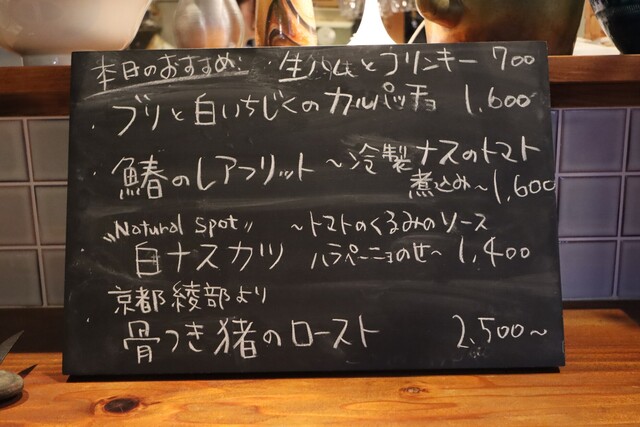 本日のおすすめ! ・生ハムとブリンキー 700
・ブリと白いちじくのカルパッチョ 1,600
・鰆のレアフリット ~冷製ナスのトマト
煮込み~ 1,600
"Natural Spot" ~トマトのくるみのソース
・白ナスカツ ハラペーニョのせ~ 1,400
京都綾部より
・骨つき猪のロースト 2,500~